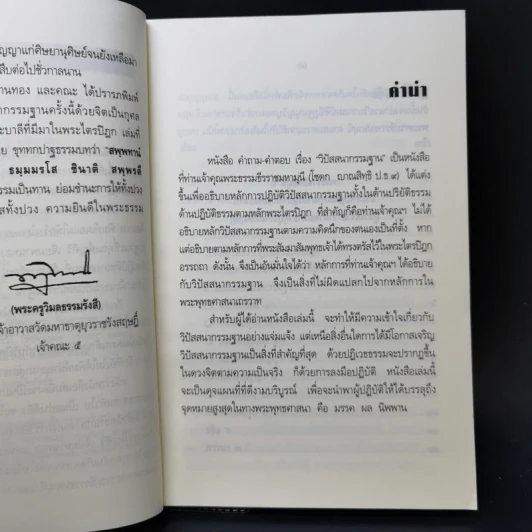 ญญาแก่ศิษยานุศิษย์จนยังเหลือมา
สืบต่อไปชั่วกาลนาน
านทอง และคณะ ได้ปรารภพิมพ์
ากรรมฐานครั้งนี้ด้วยจิตเป็นกุศล
ะบาลีที่มีมาในพระไตรปิฎก เล่มที่
าย ขุททกปาฐธรรมบทว่า “สพฺพทานํ
ธมฺมรโส ชินาติ สพฺพรตึ
รรมเป็นทาน ย่อมชำนะการให้ทั้งปวง
สทั้งปวง ความยินดีในพระธรรม
(พระครูวิมลธรรมรังสี)
จ้าอาวาสวัดมหาธาตุยุวราชรังสฤษฎิ์
เจ้าคณะ ๕
คำนำ
หนังสือ คำถาม-คำตอบ เรื่อง “วิปัสสนากรรมฐาน” เป็นหนังสือ
ที่ท่านเจ้าคุณพระธรรมธีรราชมหามุนี (โชดก ญาณสิทธิ ป.ธ.๙) ได้แต่ง
ขึ้นเพื่ออธิบายหลักการปฏิบัติวิปัสสนากรรมฐานทั้งในด้านปริยัติธรรม
ด้านปฏิบัติธรรมตามหลักพระไตรปิฎก ที่สำคัญก็คือท่านเจ้าคุณฯ ไม่ได้
อธิบายหลักวิปัสสนากรรมฐานตามความคิดนึกของตนเองเป็นที่ตั้ง หาก
แต่อธิบายตามหลักการที่พระสัมมาสัมพุทธเจ้าได้ทรงตรัสไว้ในพระไตรปิฎก
อรรถกถา ดังนั้น จึงเป็นอันมั่นใจได้ว่า หลักการที่ท่านเจ้าคุณฯ ได้อธิบาย
กับวิปัสสนากรรมฐาน จึงเป็นสิ่งที่ไม่ผิดแปลกไปจากหลักการใน
พระพุทธศาสนาเถรวาท
สำหรับผู้ได้อ่านหนังสือเล่มนี้ จะทำให้มีความเข้าใจเกี่ยวกับ
วิปัสสนากรรมฐานอย่างแจ่มแจ้ง แต่เหนือสิ่งอื่นใดการได้มีโอกาสเจริญ
วิปัสสนากรรมฐานเป็นสิ่งที่สำคัญที่สุด ด้วยปฏิเวธธรรมจะปรากฏขึ้น
ในดวงจิตตามความเป็นจริง ก็ด้วยการลงมือปฏิบัติ หนังสือเล่มนี้
จะเป็นดุจแผนที่ที่ดีงามบริบูรณ์ เพื่อจะนำพาผู้ปฏิบัติให้ได้บรรลุถึง
จุดหมายสูงสุดในทางพระพุทธศาสนา คือ มรรค ผล นิพพาน